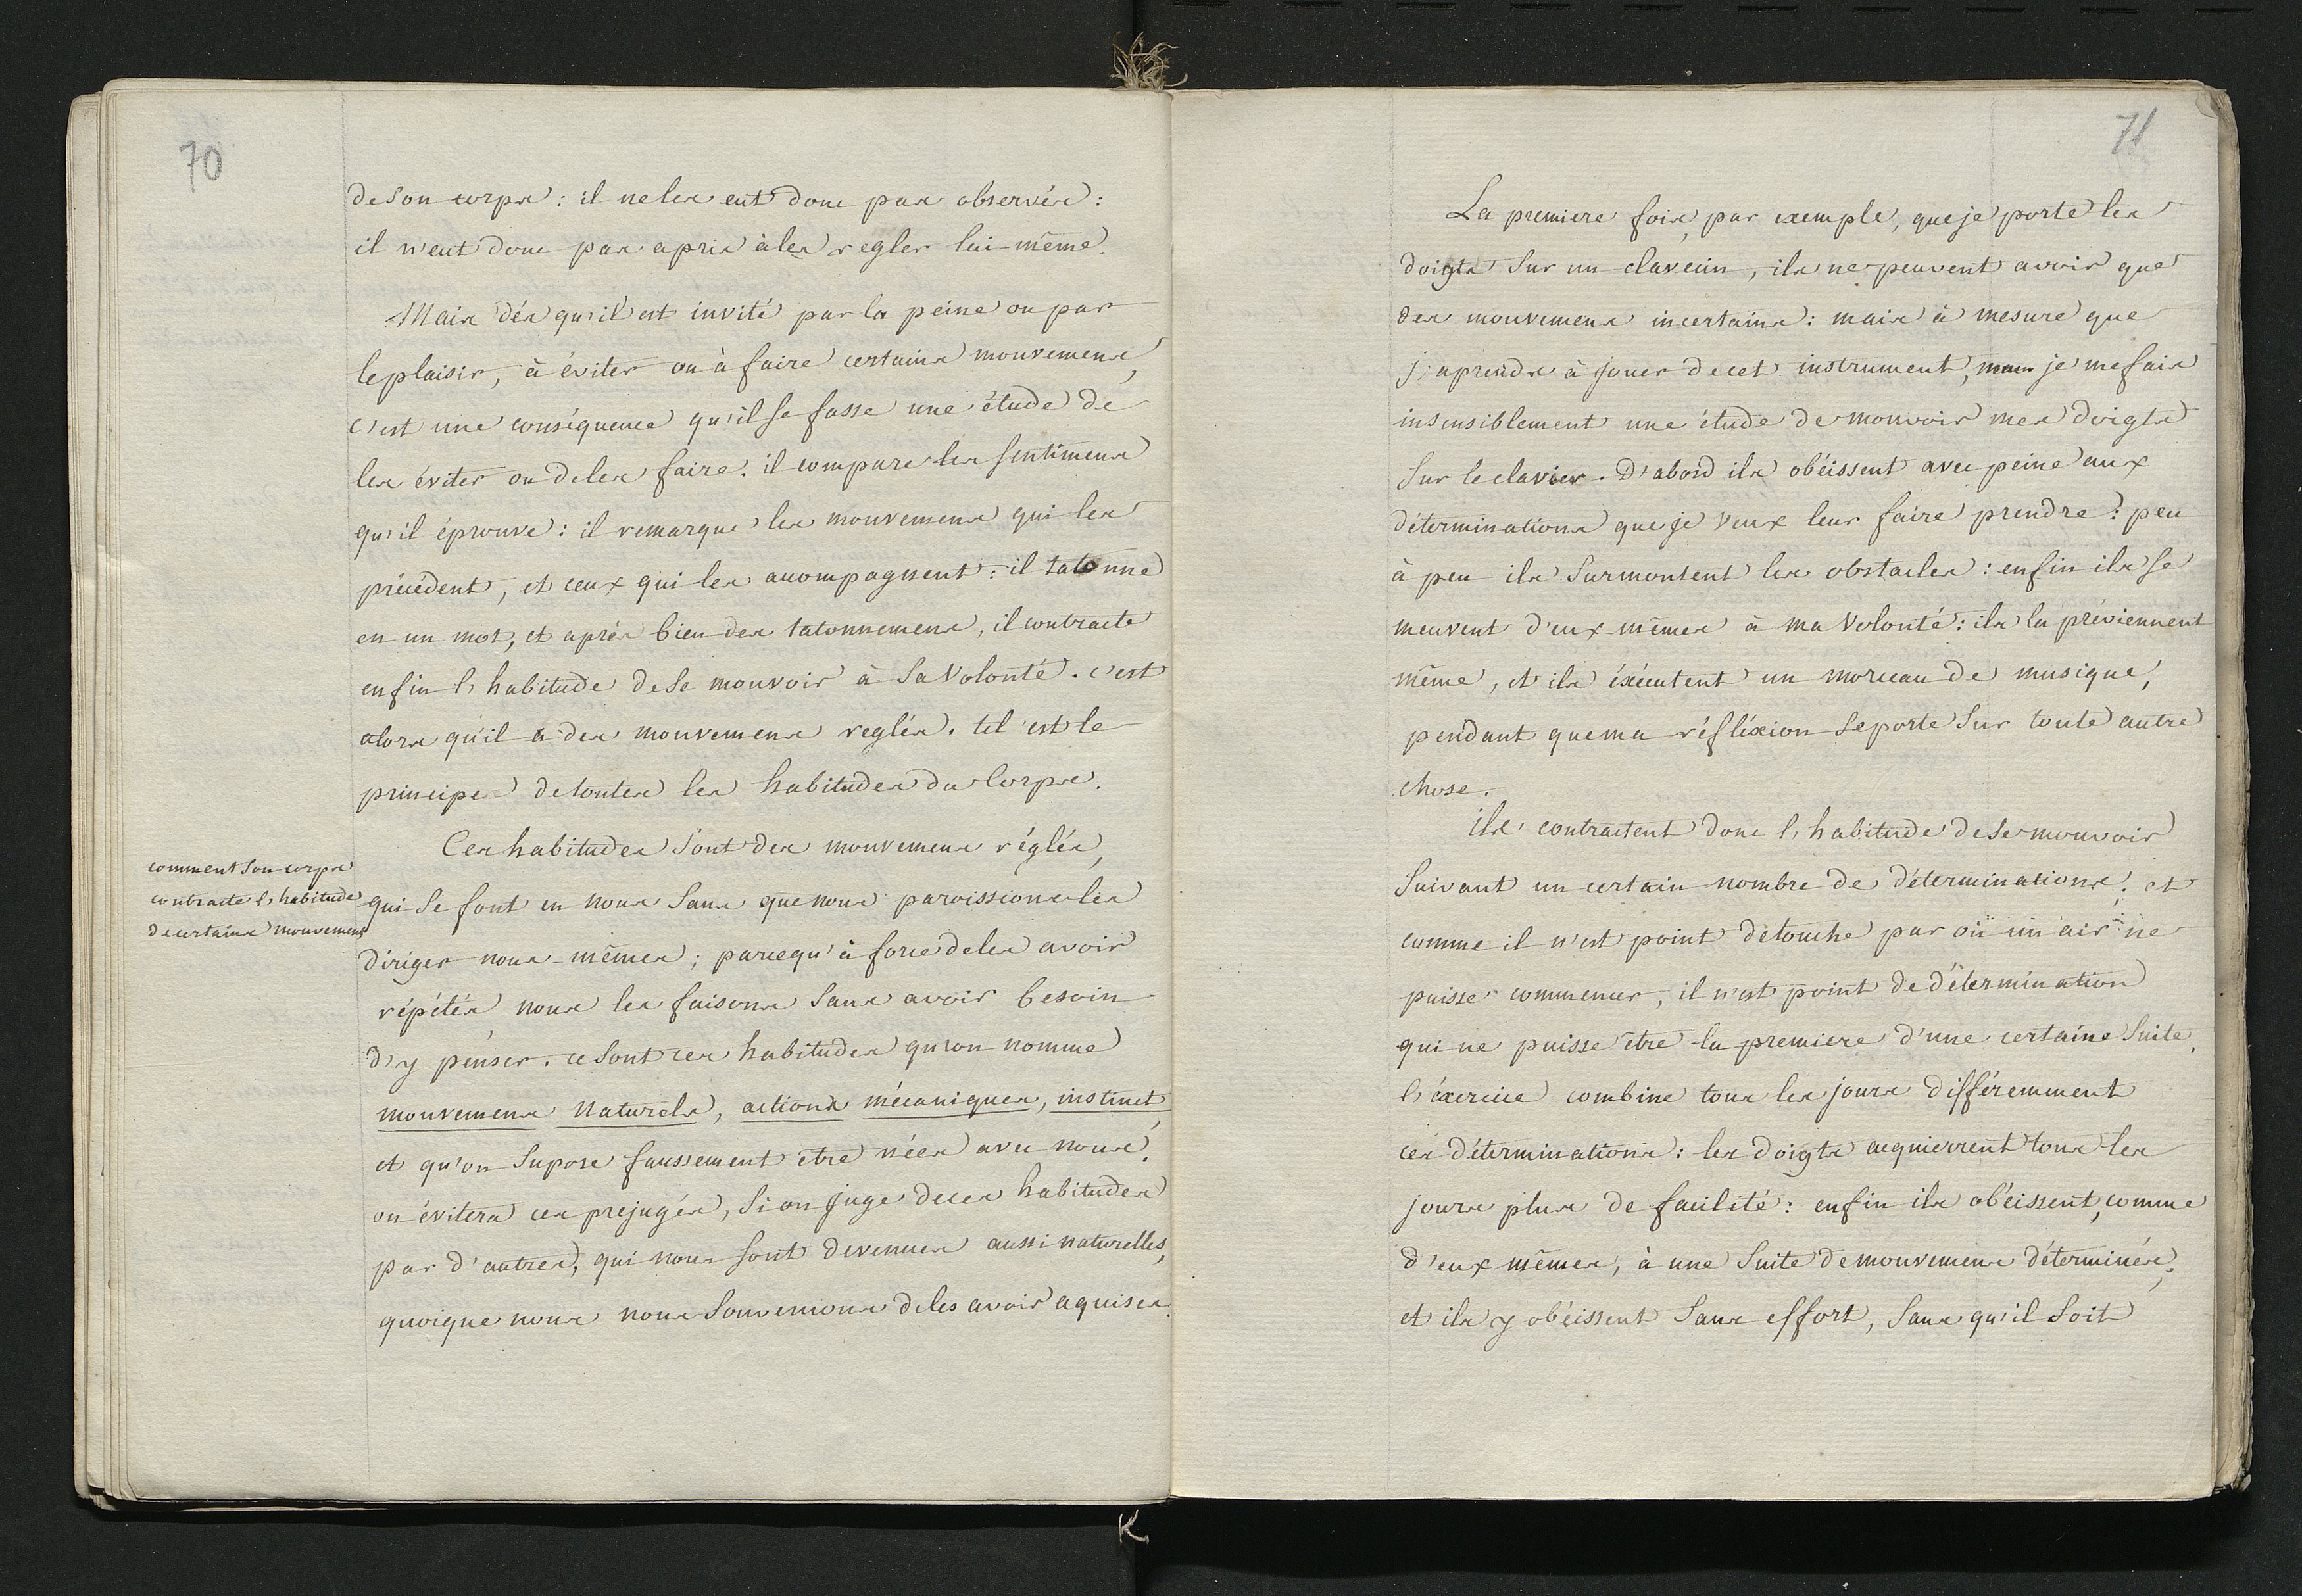 70
de son corps : il ne les eut donc pas observés :
il n'eut donc pas apris à les regler lui-même.
Mais dés qu'il est invité par la peine ou par
le plaisir, à éviter ou à faire certains mouvemens,
c'est une conséquence qu'il se fasse une étude de
les éviter ou de les faire. il compare les sentimens
qu'il éprouve : il remarque les mouvemens qui les
précédent, et ceux qui les accompagnent : il tatonne
en un mot, et aprés bien des tatonnemens, il contracte
enfin l'habitude de se mouvoir à sa volonté. c'est
alors qu'il a des mouvemens reglés. tel est le
principe de toutes les habitudes du corps.
comment son corps
contracte l'habitude
de certains mouvemens
Ces habitudes sont des mouvemens réglés,
qui se font en nous sans que nous paroissions les
diriger nous-mêmes ; parcequ'à force de les avoir
répétés, nous les faisons sans avoir besoin
d'y penser. ce sont ces habitudes qu'on nomme
mouvemens naturels, actions mécaniques, instinct,
et qu'on supose faussement être nées avec nous.
on évitera ces prejugés, si on juge de ces habitudes
par d'autres, qui nous sont devenues aussi naturelles,
quoique nous nous souvenions de les avoir aquises.
71
La premiere fois, par exemple, que je porte les
doigts sur un clavecin, ils ne peuvent avoir que
des mouvemens incertains : mais à mesure que
j'aprends à jouer de cet instrument, je me fais
insensiblement une étude de mouvoir mes doigts
sur le clavier. D'abord ils obéissent avec peine aux
déterminations que je veux leur faire prendre : peu
à peu ils surmontent les obstacles : enfin ils se
meuvent d'eux-mêmes à ma volonté : ils la préviennent
même, et ils éxécutent un morceau de musique,
pendant que ma réfléxion se porte sur toute autre
chose.
ils contractent donc l'habitude de se mouvoir
suivant un certain nombre de déterminations ; et
comme il n'est point de touche par où un air ne
puisse commencer, il n'est point de détermination
qui ne puisse être la premiere d'une certaine suite.
l'éxercice combine tous les jours différemment
ces déterminations : les doigts acquierrent tous les
jours plus de facilité : enfin ils obéissent, comme
d'eux mêmes, à une suite de mouvemens déterminés ;
et ils y obéissent sans effort, sans qu'il soit